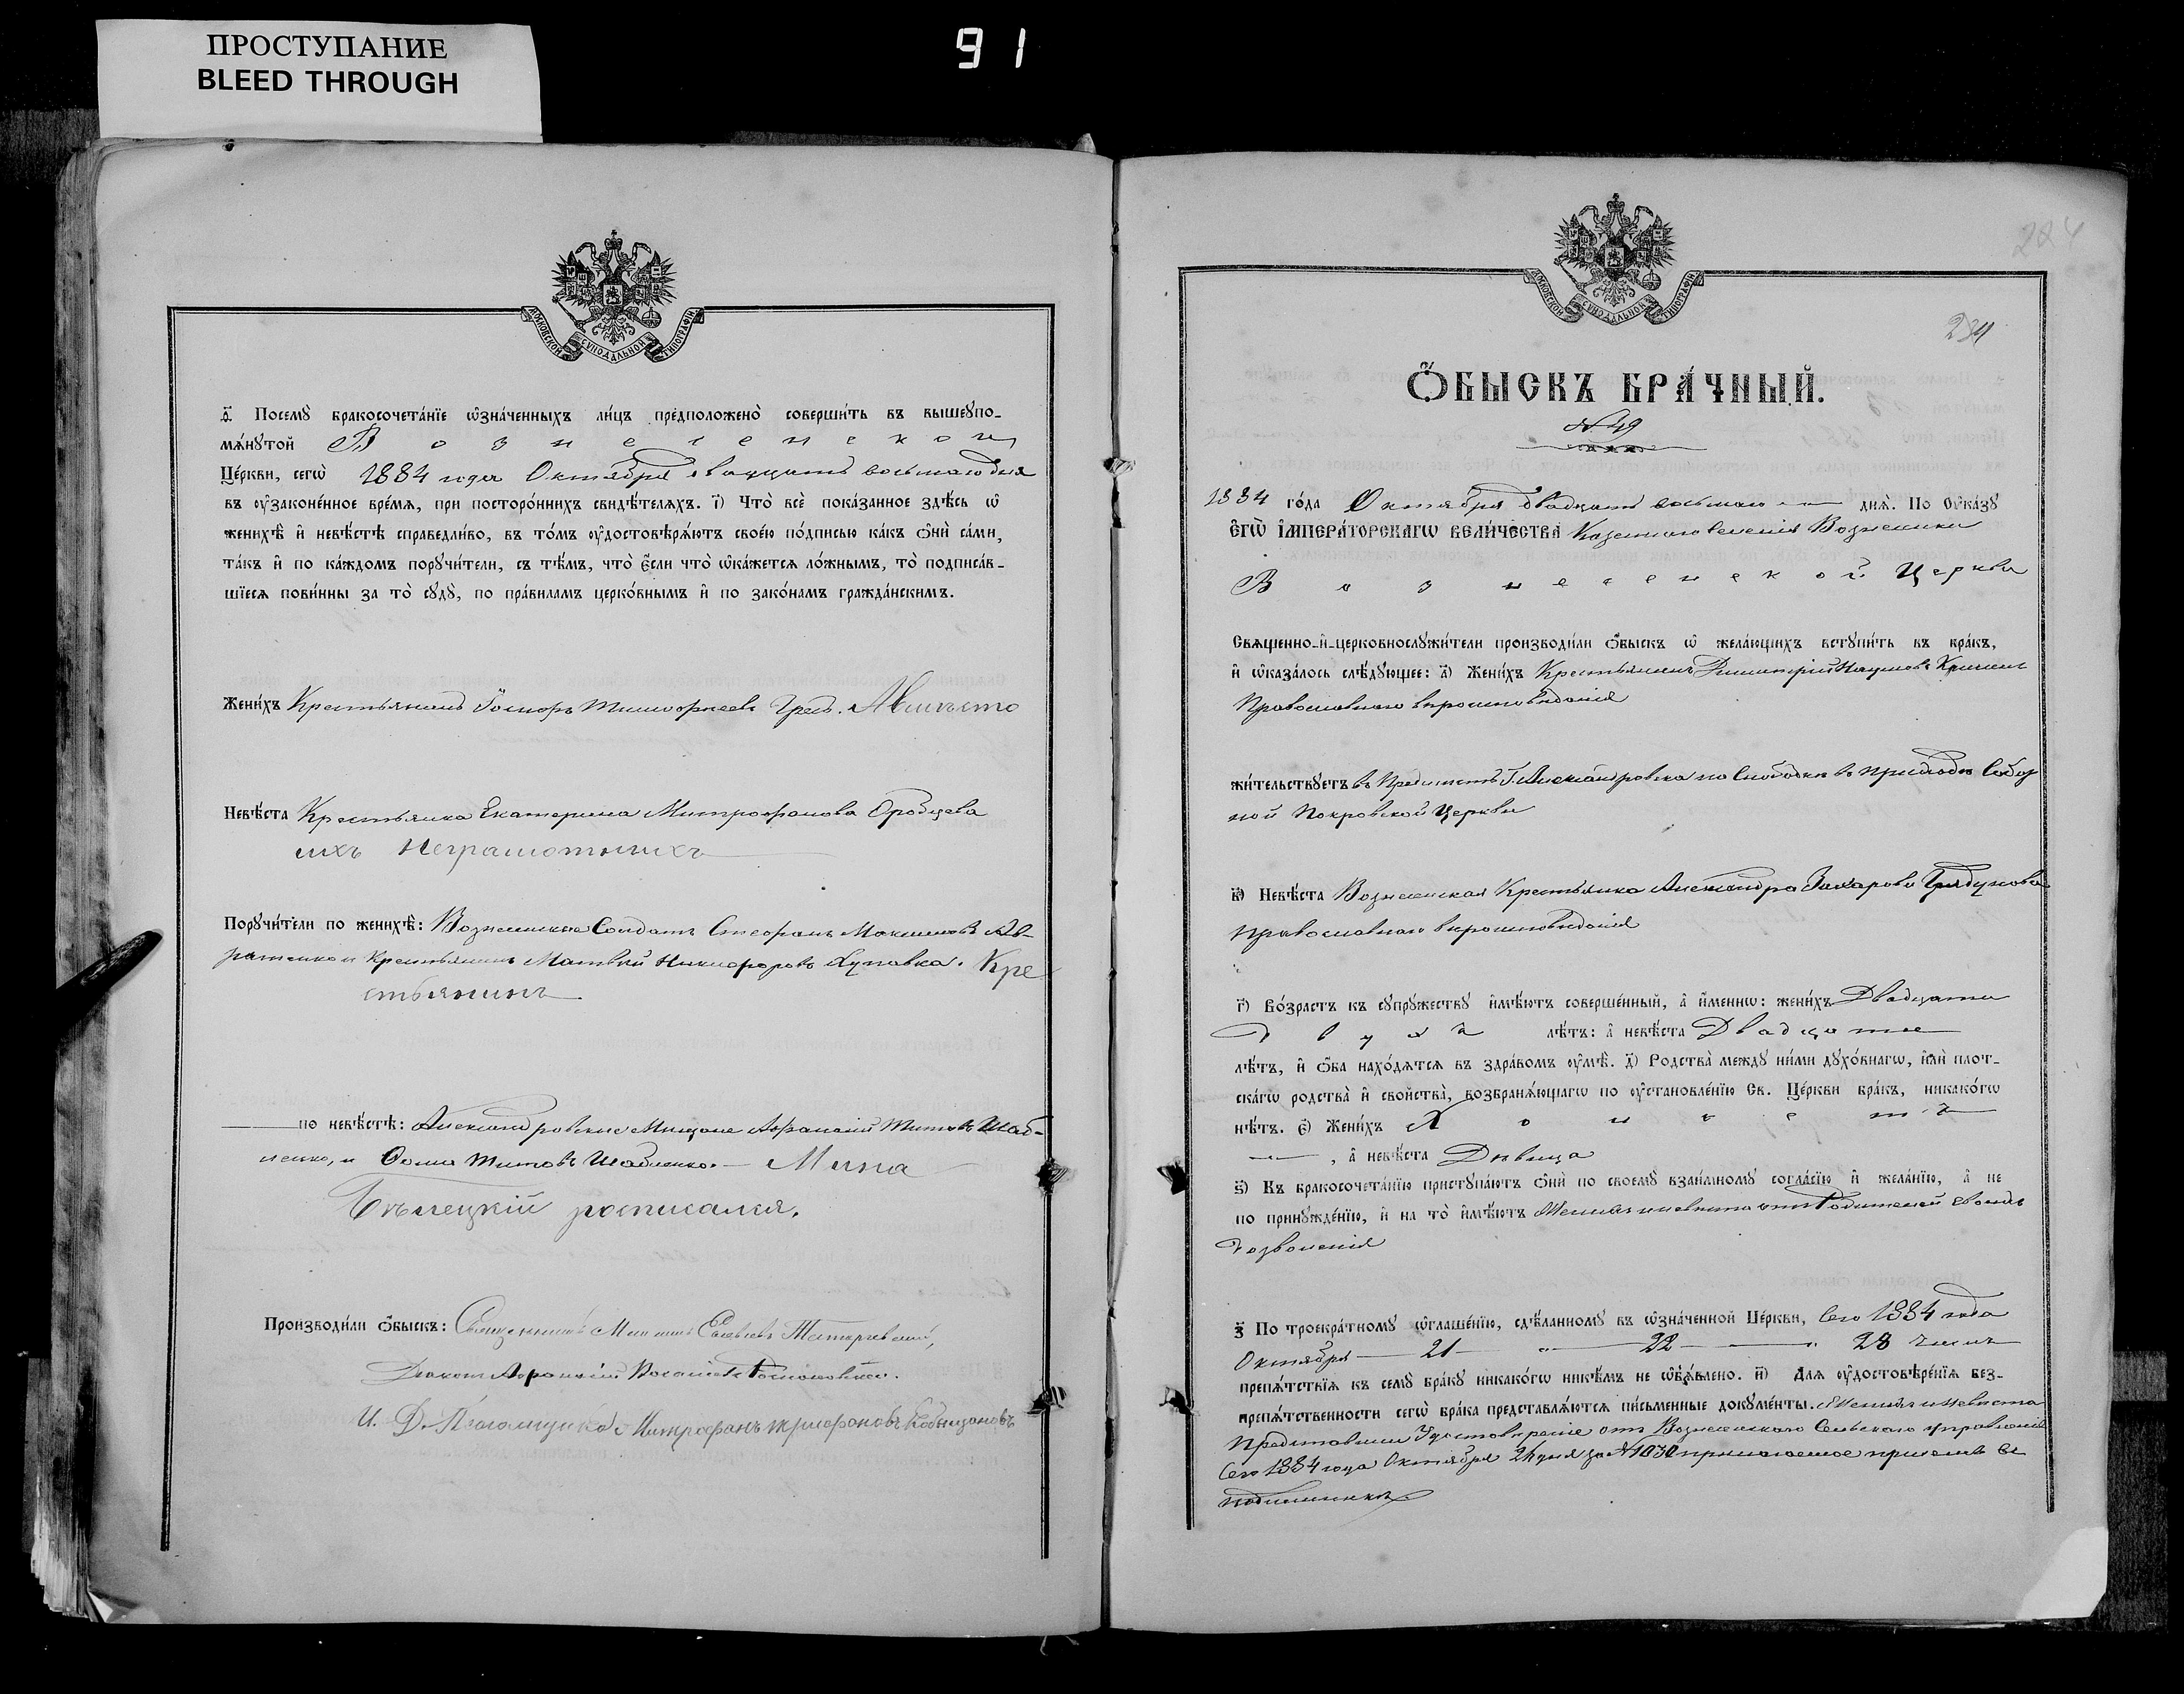 ПРОСТУПАНИЕ
BLEED THROUGH
91
МОСКОВСКОЙ СѴНОДАЛЬНОЙ ТИПОГРАФІИ
ѳ҃. Посемꙋ бракосочета́нїе ѡ҆зна́ченныхъ ли́цъ предположено̀ соверши́ть въ вышеꙋпо-
мѧ́нꙋтой Вознесенской
Це́ркви, сегѡ̀ 1884 года Октября двадцать восьмаго дня
въ ᲂу҆законе́нное вре́мѧ, при посторо́ннихъ свидѣ́телѧхъ. і҃) Что̀ всѐ пока́занное здѣ́сь ѡ҆
женихѣ̀ и҆ невѣ́стѣ справедли́во, въ то́мъ ᲂу҆достовѣрѧ́ютъ свое́ю по́дписью ка́къ ѻ҆нѝ са́ми,
та́къ и҆ по ка́ждомъ порꙋчи́тели, съ тѣ́мъ, что̀ є҆́сли что̀ ѡ҆ка́жетсѧ ло́жнымъ, то̀ подписа́в-
шїесѧ пови́нны за то̀ сꙋдꙋ̀, по пра́вилամъ церко́внымъ и҆ по зако́намъ гражда́нскимъ.
Жени́хъ Крестьянинъ Тимофеевъ
Невѣ́ста Крестьянка Екатерина Митрофанова
ихъ неграмотныхъ
Порꙋчи́тели по женихѣ̀: Вознесенские Солдатъ Стефанъ Максимовъ Ав-
раменко и Крестьянинъ Матвѣй Никифоровъ Кре
стьянинъ
по невѣ́стѣ: Александровские Мещане Афанасий Титовъ Шаб-
ленко, и Фома Титовъ Шабленко. Мина
Бѣлецкій росписался.
Производи́ли ѻ҆́быскъ: Священникъ
Діаконъ Афанасий
И. Д. Псаломщика Митрофанъ
224
МОСКОВСКОЙ СѴНОДАЛЬНОЙ ТИПОГРАФІИ
234
Ѻ҆́БЫСКЪ БРА́ЧНЫЙ.
№ 49
1884 го́да Октября двадцать восьмаго днѧ̀. По Оу҆ка́зꙋ
Є҆гѡ̀ І҆мпера́торскагѡ Вели́чества Казеннаго селенія Вознесенки
Вознесенской Церкви
Свѧщенно-и҆-церковнослꙋжи́тели производи́ли ѻ҆́быскъ ѡ҆ жела́ющихъ встꙋпи́ть въ бра́къ,
и҆ ѡ҆каза́лось слѣ́дꙋющее: а҃) Жени́хъ Крестьянинъ Димитрій Наумовъ
Православнаго вѣроисповѣданія
жи́тельствꙋетъ въ Предмѣстѣ Г. Александровска на Слободкѣ въ приходѣ Собор
ной Покровской Церкви
в҃) Невѣ́ста Вознесенская Крестьянка Александра Захарова
Православнаго вѣроисповѣданія
г҃) Во́зрастъ къ сꙋпрꙋ́жествꙋ и҆мѣ́ютъ соверше́нный, а҆ и҆́меннѡ: жени́хъ Двадцати
двухъ лѣ́тъ: а҆ невѣ́ста Двадцати
лѣ́тъ, и҆ ѻ҆́ба нахо́дѧтсѧ въ здра́вомъ ᲂу҆мѣ̀. д҃) Родства̀ междꙋ ни́ми дꙋхо́внагѡ, и҆лѝ плот-
ска́гѡ родства̀ и҆ свойства̀, возбранѧ́ющагѡ по ᲂу҆становле́нїю Св. Це́ркви бра́къ, никако́гѡ
нѣ́тъ. є҃) Жени́хъ Холостъ
, а҆ невѣ́ста Дѣвица
ѕ҃) Къ бракосочета́нїю пристꙋпа́ютъ ѻ҆нѝ по своемꙋ̀ взаи́мномꙋ согла́сїю и҆ жела́нїю, а҆ не
по принꙋжде́нїю, и҆ на то̀ и҆мѣ́ютъ Женихъ и невѣста отъ Родителей своихъ
дозволенія
з҃ По троекра́тномꙋ ѡ҆глаше́нїю, сдѣ́ланномꙋ въ ѡ҆зна́ченной Це́ркви, сего 1884 года
Октября 21 22 28 чиселъ
препѧ́тствїѧ къ семꙋ̀ бра́кꙋ никако́гѡ никѣ́мъ не ѡ҆б̾ѧ́влено. и҃) Длѧ ᲂу҆достовѣре́нїѧ без-
препѧ́тственности сегѡ̀ бра́ка представлѧ́ютсѧ пи́сьменные докꙋме́нты. Женихъ и невѣста
Представили Удостовѣреніе отъ Вознесенскаго Сельскаго управленія
Сего 1884 года Октября дня за № 1030 прилагаемое присемъ въ
подлинникѣ.